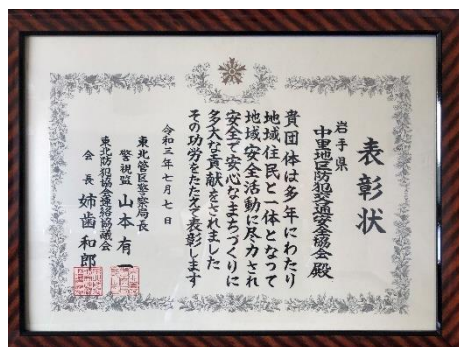 表彰状
岩手県
中里地区防犯交通安全協会 殿
貴団体は多年にわたり
地域住民と一体となって
地域安全活動に尽力され
安全で安心なまちづくりに
多大な貢献をされました
その功労をたたえて表彰します
令和三年七月七日
東北管区警察局長
警視監 山本有一
東北防犯協会連絡協議会
会長 姉歯和郎